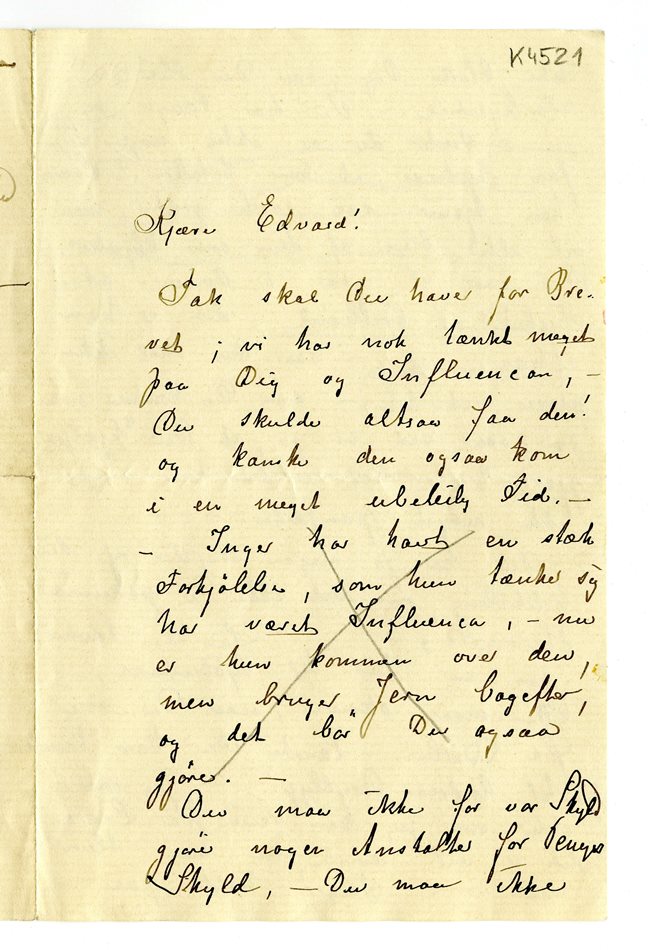 K4521
Kjære Edvard!
Tak skal Du have for Bre-
vet; vi har nok tænkt meget
paa Dig og Influencan, –
Du skulde altsaa faa den!
og kanske den ogsaa kom
i en meget ubeleilig Tid. –
– Inger har havt en stærk
Forkjölelse, som hun tænker sig
har været Influenca, – nu
er hun kommen over den,
men bruger Jern bagefter,
og det bör Du ogsaa
gjöre. –
Du maa ikke for vor Skyld
gjöre nogen Anstalter for Penges
Skyld, – Du maa ikke